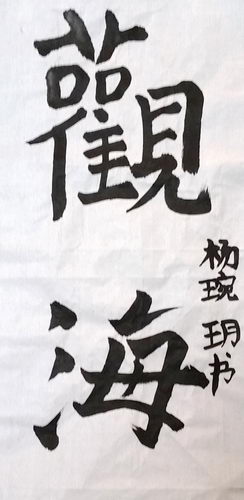 觀海
杨琬玥书